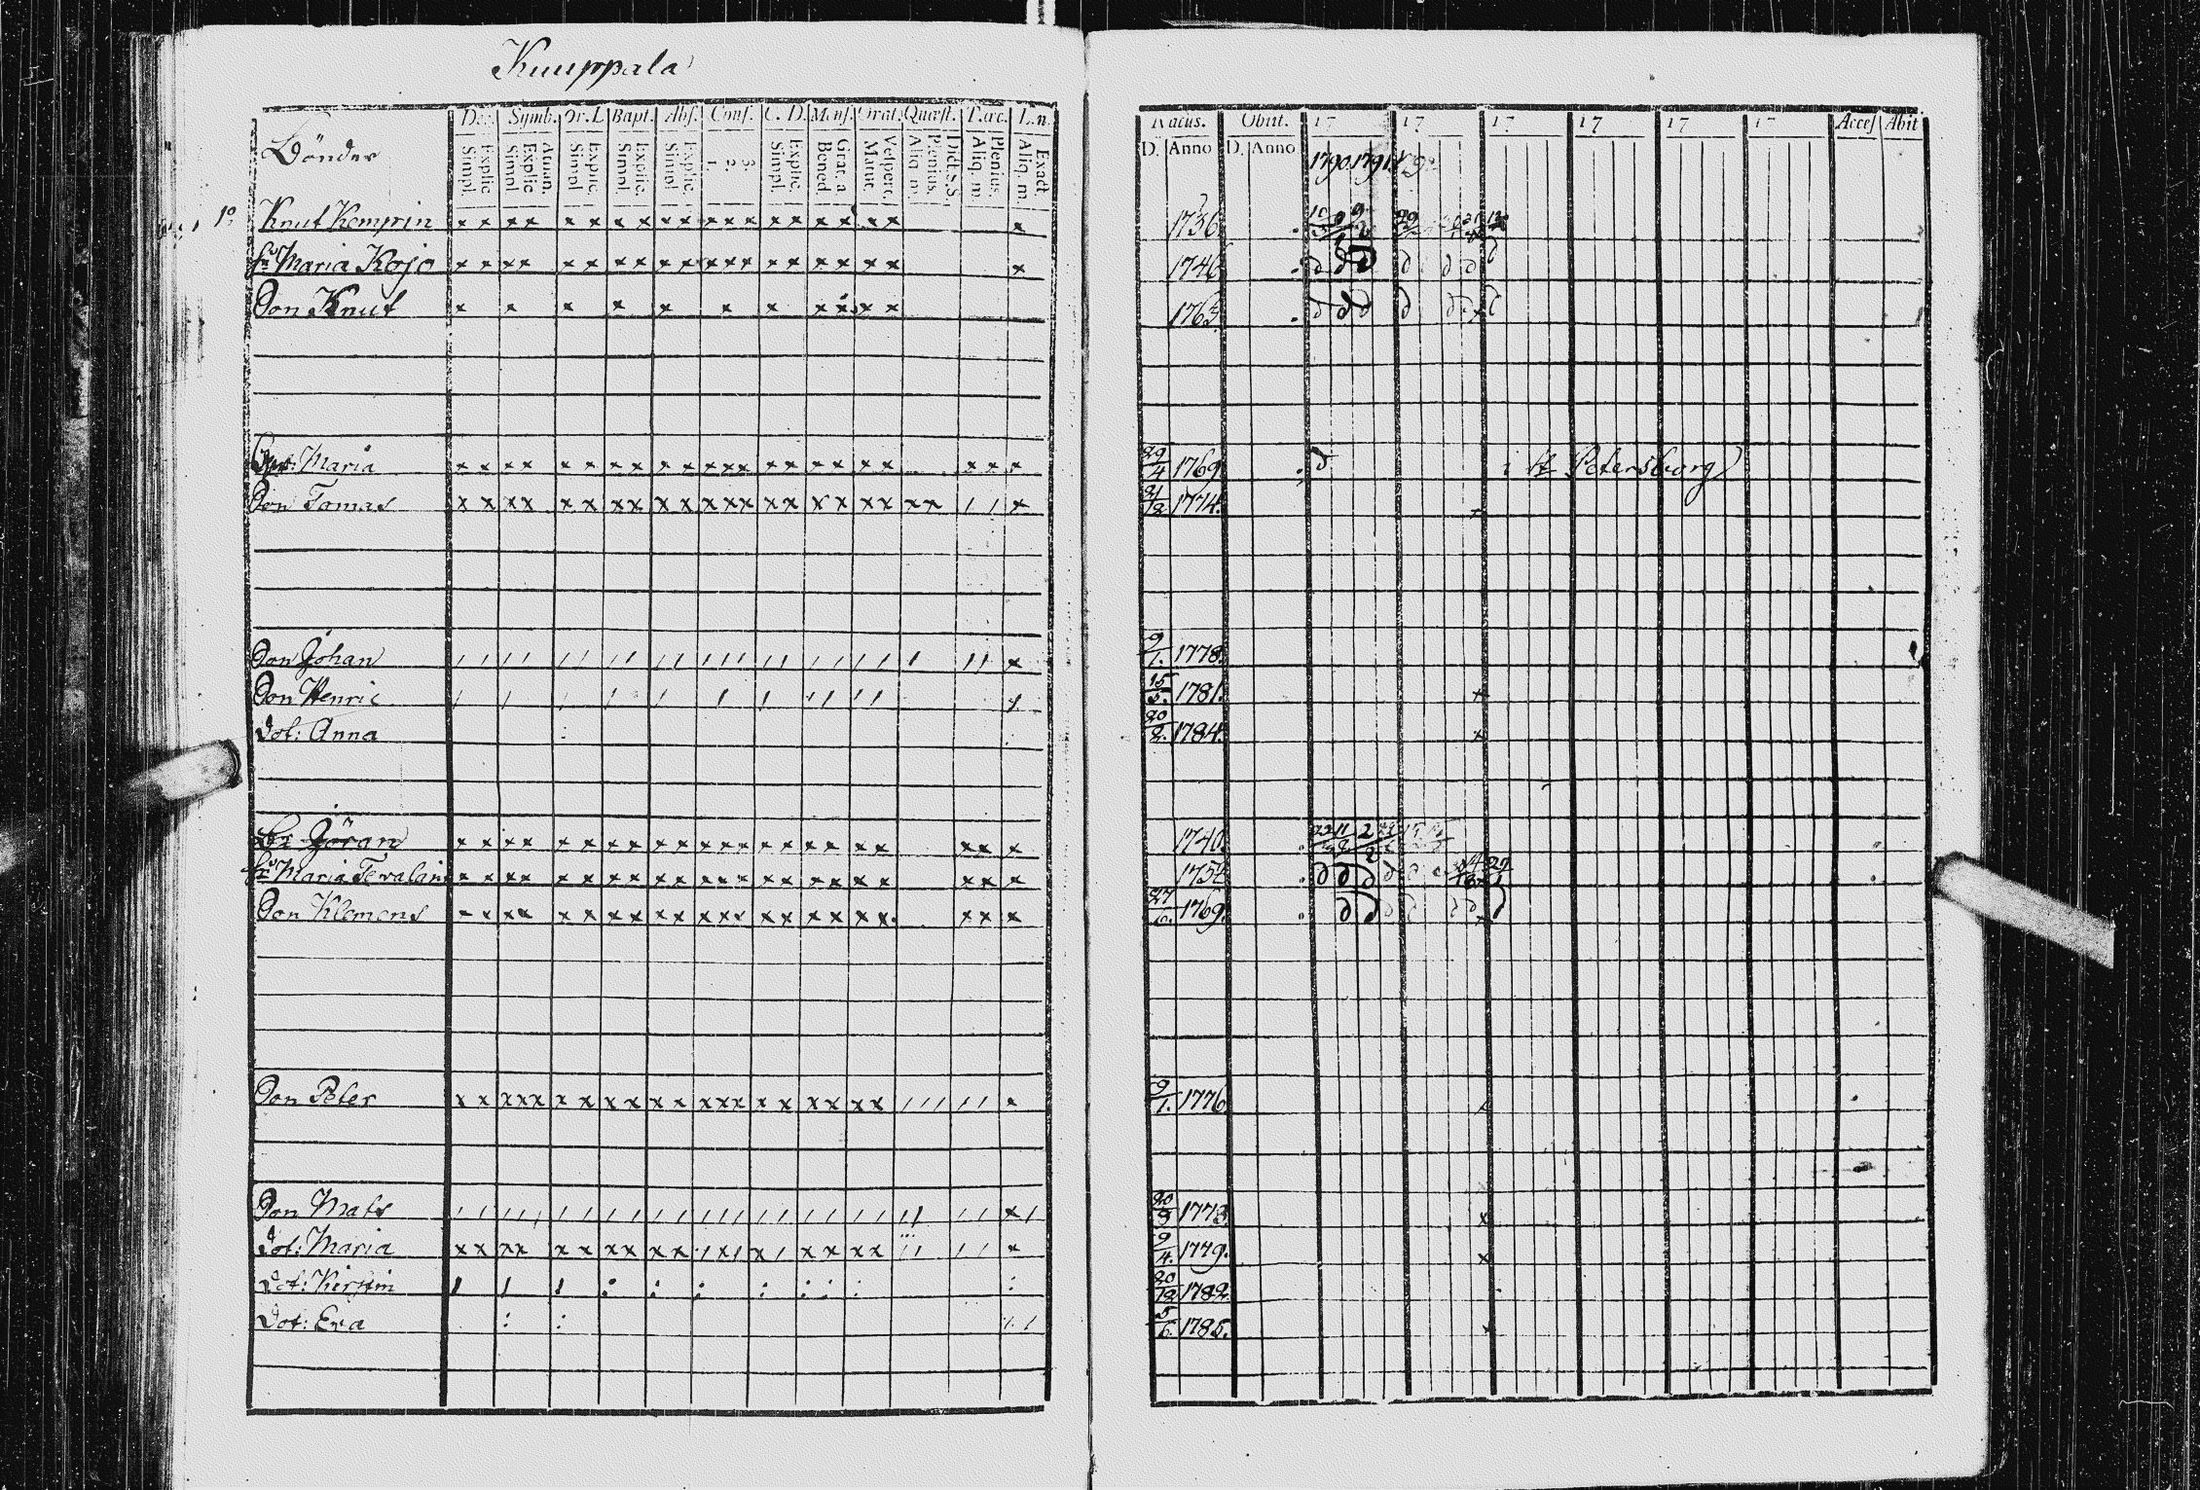 Kuuppala
Dec. Symb. Or. L Bapt. Abs. Conf. C. D. Mens. Orat. Quæst. T.œc. L.n.
Bönder Explic. Simpl. Athan. Explic. Simpl. Explic. Simpl. Explic. Simpl. Explic. Simpl. 3. 2. 1. Explic. Simpl. Grat. a. Bened. Vespert. Matut. Dict. S. S. Plenius. Aliq. m. Plenius. Aliq. m. Exact. Aliq. m.
Natus. Obiit. 17 17 17 17 17 17 Acces Abit
D. Anno D. Anno
1790. 1791.
1º Knut Kemppin x x x x x x x x x x x x x x x x x x x x 1736.
Maria Kojo x x x x x x x x x x x x x x x x x x x x 1746
Son Knut x x x x x x x x x x x 1763.
Maria x x x x x x x x x x x x x x x x x x x x x x 29/4 1769 i St Petersborg
Son Tomas x x x x x x x x x x x x x x x x x x x x x / / x 21/12 1774.
Son Johan 9/1. 1778.
Son Henric 15/5. 1781.
Dot: Anna 20/2. 1784.
Göran x x x x x x x x x x x x x x x x x x x x x x 1740.
Maria Tewalain x x x x x x x x x x x x x x x x x x x x x x 1754
Son Klemens x x x x x x x x x x x x x x x x x x x x x 27/6. 1769.
Son Peter x x x x x x x x x x x x x x x x x x x x / / / / / x 9/1. 1776
Son Mats 20/9 1778
Dot: Maria 9/4. 1779.
Dot: Kirstin 20/12 1782.
Dot: Eva 5/6. 1785.